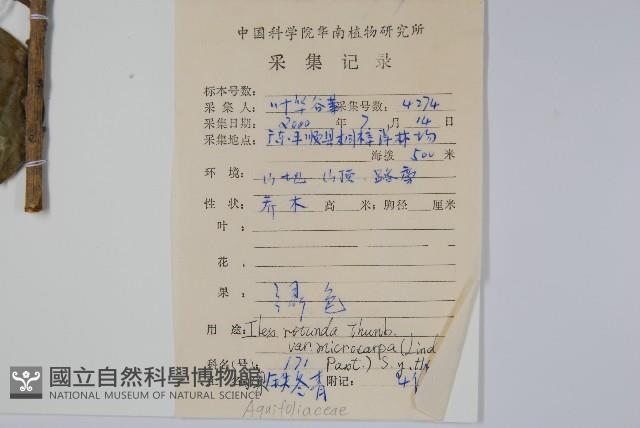 中国科学院华南植物研究所
采集记录
标本号数:
采集人: 叶华谷 采集号数: 4274
采集日期: 2000 年 7 月 14 日
采集地点: 顺昌 林场
海拨 500 米
环境: 山地 山顶 路旁
性状: 乔木 高 米; 胸径 厘米
叶:
花:
果: 绿色
用途: Ilex rotunda Thunb.
var. microcarpa (Lind
科名(号): 171 Paxt.) S.y. Hu
铁冬青 附记:
Aquifoliaceae
國立自然科學博物館
NATIONAL MUSEUM OF NATURAL SCIENCE